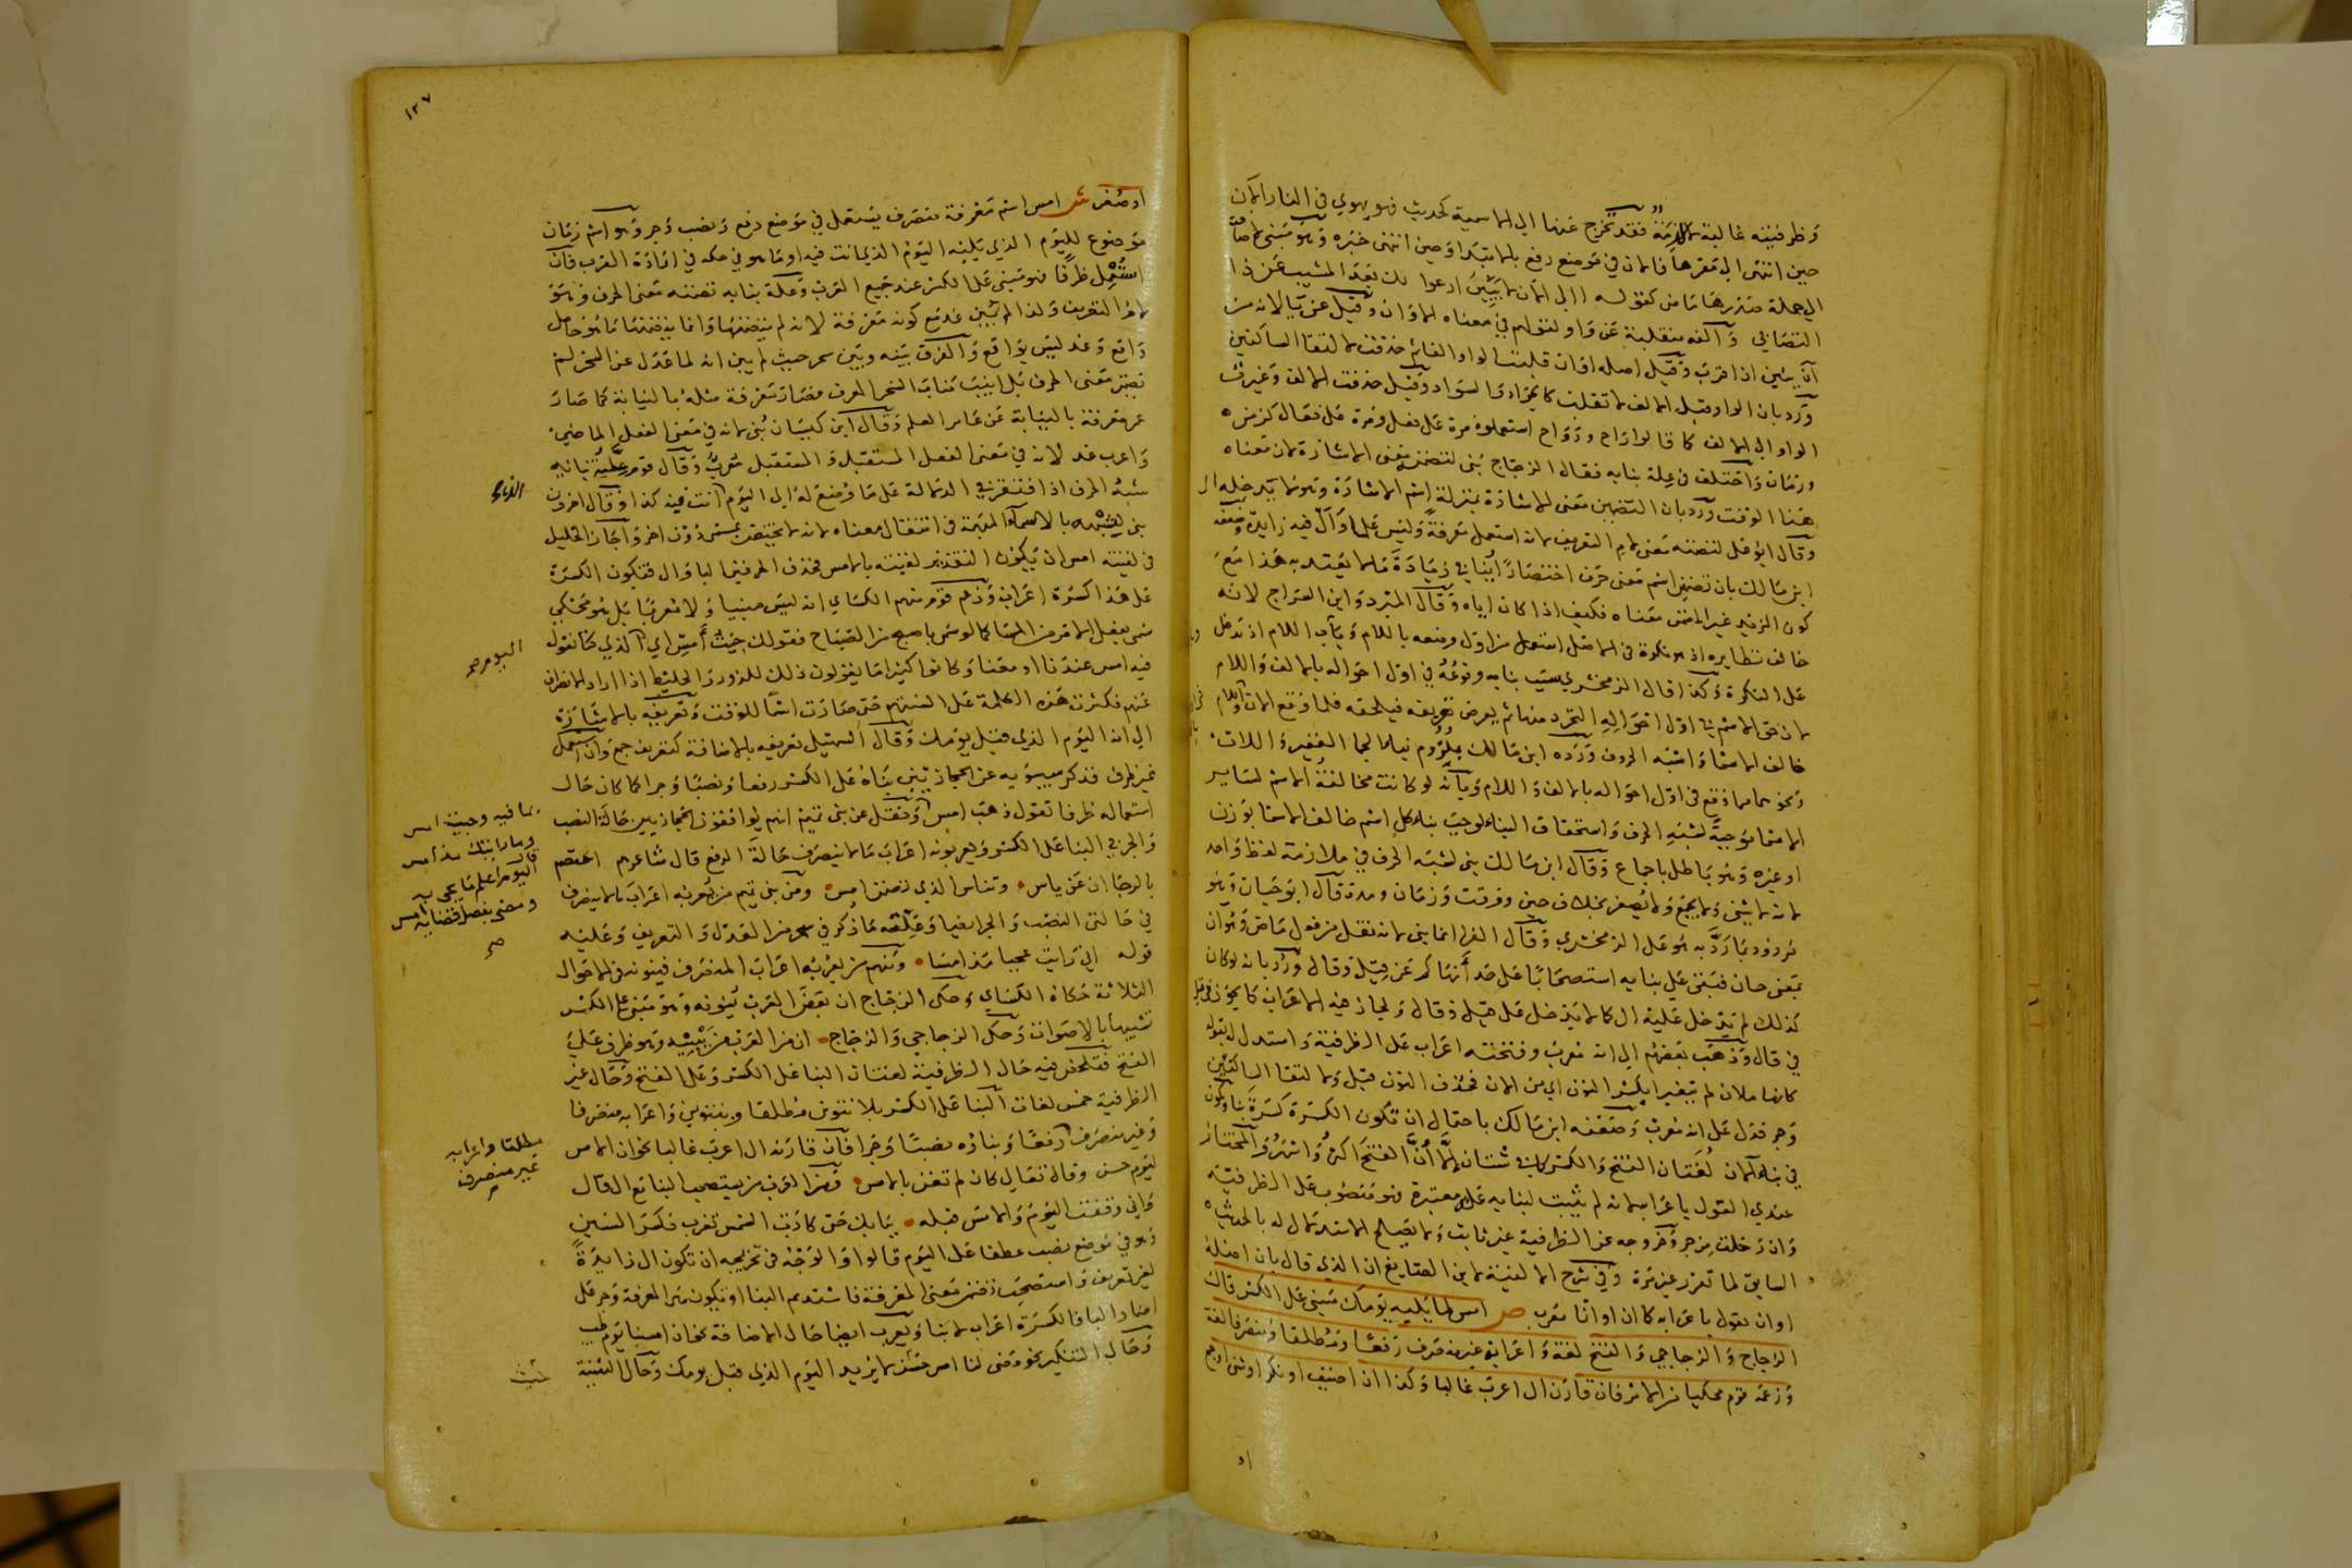 وظرفيته غالبة لا لازمة فقد تخرج عنها الى الاسمية كحديث فهو يهوي في النار الآن
حين انتهى الى قعرها فالآن في موضع رفع بالابتدا وحين انتهى خبره وهو مبني لاضافته
الى جملة صدرها ماض كقوله أ إلى الآن لا يبين ارعوا لك بعد المشيب عن ذا
التصابي وألفه منقلبة عن واو لقولهم في معناه الاوان وقيل عن يا لانه من
آن يئين اذا قرب وقيل اصله اوان قلبت الواو الفا ثم حذفت لالتقا الساكنين
ورد بان الواو قبل الالف لا تقلب كالجواد والسواد وقيل حذفت الالف وغيرت
الواو الى الالف كما قالوا راح ورواح استعملوه مرة على فعل ومرة على فعال كزمن
وزمان واختلف في علة بنايه فقال الزجاج بني لتضمنه معنى الاشارة لان معناه
هذا الوقت ورد بان التضمين معنى الاشارة بمنزلة اسم الاشارة وهو لا تدخله ال
وقال ابو علي لتضمنه معنى لام التعريف لانه استعمل معرفة وليس علما وأل فيه زايدة وضعفه
ابن مالك بان تضمن اسم معنى حرف اختصارا ينافي زيادة ما لا يعتد به هذا مع
كون المزيد غير المضمن معناه فكيف اذا كان اياه وقال المبرد وابن السراج لانه
خالف نظايره اذ هو نكرة في الاصل استعمل من اول وضعه باللام وباب اللام ان تدخل
على النكرة وكذا قال الزمخشري سبب بنايه وقوعه في اول احواله بالالف واللام
لان حق الاسم في اول احواله التجرد منها ثم يعرض تعريفه فيلحقه فلما وقع الآن
خالف الاسما واشبه الحروف ورده ابن مالك بلزوم بنا الجما الغفير واللات
ونحوهما مما وقع في اول احواله بالالف واللام وبانه لو كانت مخالفة الاسم لساير
الاسما موجبة لشبه الحرف واستحقاق البناء لوجب بناء كل اسم خالف الاسما بوزن
او غيره وهو باطل باجماع وقال ابن مالك بني لشبه الحرف في ملازمة لفظ واحد
لانه لا يثنى ولا يجمع ولا يصغر بخلاف حين ووقت وزمان ومدة قال ابو حيان وهو
مردود بما رد به هو على الزمخشري وقال الفرا انما بني لانه نقل من فعل ماض وهو ان
بمعنى حان فبقي على بنايه استصحابا على حد أنهاكم عن قيل وقال ورد بانه لو كان
كذلك لم تدخل عليه ال كما لا تدخل على قيل وقال ولجاز فيه الاعراب كما يجوز في قيل
في قال وذهب بعضهم الى انه معرب وفتحته اعراب على الظرفية واستدل له بقوله
كانهما ملان لم يتغيرا بكسر النون اي من الان فحذف النون قبل والالتقا الساكنين
وجر فدل على انه معرب وضعفه ابن مالك باحتمال ان تكون الكسرة كسرة بنا وتكون
في بناء الآن لغتان الفتح والكسر كما في شتان الا أن الفتح اكثر واشهر والمختار
عندي القول باعرابه لانه لم تثبت لبنايه علة معتبرة فهو منصوب على الظرفية
وان دخلت من جر وخروجه عن الظرفية غير ثابت ولا يصلح الاستدلال له بالحديث
السابق لما تقرر غير مرة وفي شرح الالفية لابن الصايغ ان الذي قال بان اصله
اوان يقول باعرابه كما ان اوانا معرب ص امس لما يليه يومك مبني على الكسر قال
الزجاج والزجاجي والفتح لغة واعرابه غير منصرف رفعا ومطلقا ومنصرفا لغة
وزعمه قوم محكيا من الامر فان قارن ال اعرب غالبا وكذا ان اضيف او نكر او ثني او جمع
او
١٢٧
او صغر ش امس اسم معرفة متصرف يستعمل في موضع رفع ونصب وجر وهو اسم زمان
موضوع لليوم الذي يليه اليوم الذي انت فيه او ما هو في حكمه في ارادة القرب فان
استعمل ظرفا فهو مبني على الكسر عند جميع العرب وعلة بنايه تضمنه معنى الحرف وهو
لام التعريف ولذا لم يبن غد مع كونه معرفة لانه لم يتضمنها وانما يتضمنها ما هو حاصل
واقع وغد ليس بواقع والفرق بينه وبين سحر حيث لم يبن انه لما عدل عن السحر لم
يتضمن معنى الحرف بل انيب مناب السحر المعرف فصار معرفة مثله بالنيابة كما صار
عمر معرفة بالنيابة عن عامر العلم وقال ابن كيسان بني لانه في معنى الفعل الماضي
واعرب غد لانه في معنى الفعل المستقبل والمستقبل معرب وقال قوم علة بنائه
شبه الحرف اذ افتقر في الدلالة على ما وضع له الى اليوم انت فيه كذا وقال اخرون
بني لشبهه بالاسماء المبهمة في انتقال معناه لانه لا يختص بمسمى دون اخر واجاز الخليل
في لقيته امس ان يكون التقدير لقيته بالامس فحذف الحرفين البا وال فتكون الكسرة
على هذا كسرة اعراب وزعم قوم منهم الكساي انه ليس مبنيا ولا معربا بل هو محكي
سمي بفعل الامر من المسا كما لو سمي باصبح من الصباح فقولك جئت أمس اي الذي كنا نقول
فيه امس عندنا او معنا وكانوا كثيرا ما يقولون ذلك للزور والخليط اذا اراد الانصراف
عنهم فكثرت هذه الكلمة على السنتهم حتى صارت اسما للوقت وتعريفه بالاشارة
الى انه اليوم الذي قبل يومك وقال السهيلي تعريفه بالاضافة كتعريف جمع وان استعمل
غير ظرف فذكر سيبويه عن الحجازيين بناه على الكسر رفعا ونصبا وجرا كما كان حال
استعماله ظرفا تقول ذهب امس ونقل عن بني تميم انهم يوافقون الحجازيين حالة النصب
والجر في البنا على الكسر ويعربونه اعراب ما لا ينصرف حالة الرفع قال شاعرهم اعتصم
بالرجا ان عن ياس وتناس الذي تضمن امس ومن بني تميم من يعربه اعراب ما لا ينصرف
في حالتي النصب والجر ايضا وعلته ما ذكر في سحر من العدل والتعريف وعليه
قوله اني رايت عجبا مذ امسا ومنهم من يعربه اعراب المنصرف فينونه في الاحوال
الثلاثة حكاه الكساي وحكى الزجاج ان بعض العرب ينونه وهو مبني على الكسر
تشبيها بالاصوات وحكى الزجاجي والزجاج ان من العرب من يبنيه وهو ظرف على
الفتح فتلخص فيه حال الظرفية لغتان البنا على الكسر وعلى الفتح وحال غير
الظرفية خمس لغات البنا على الكسر بلا تنوين مطلقا وبتنوين واعرابه منصرفا
وغير منصرف رفعا وبناؤه نصبا وجرا فان قارنه ال اعرب غالبا نحو ان الامس
ليوم حسن وقال تعالى كان لم تغن بالامس ومن العرب من يستصحب البنا مع ال قال
واني وقفت اليوم والامس قبله ببابك حتى كادت الشمس تغرب فكسر السين
وهو في موضع نصب عطفا على اليوم قالوا والوجه في تخريجه ان تكون ال زايدة
لغير تعريف واستصحب تضمن معنى المعرفة فاستديم البنا او تكون هي المعرفة وجر على
اضمار البا فالكسرة اعراب لا بنا ويعرب ايضا حال الاضافة نحو ان امسنا يوم طيب
وحال التنكير نحو مضى لنا امس حسن لا يريد اليوم الذي قبل يومك وحال التثنية
الذي
اليوم صح
بما فيه وجيت امس
وما رايتك مذ امس
قال
اليوم اعلم ما يجي به
ومضى بفصل قضايه امس
صح
مطلقا واعرابه
غير منصرف
صح